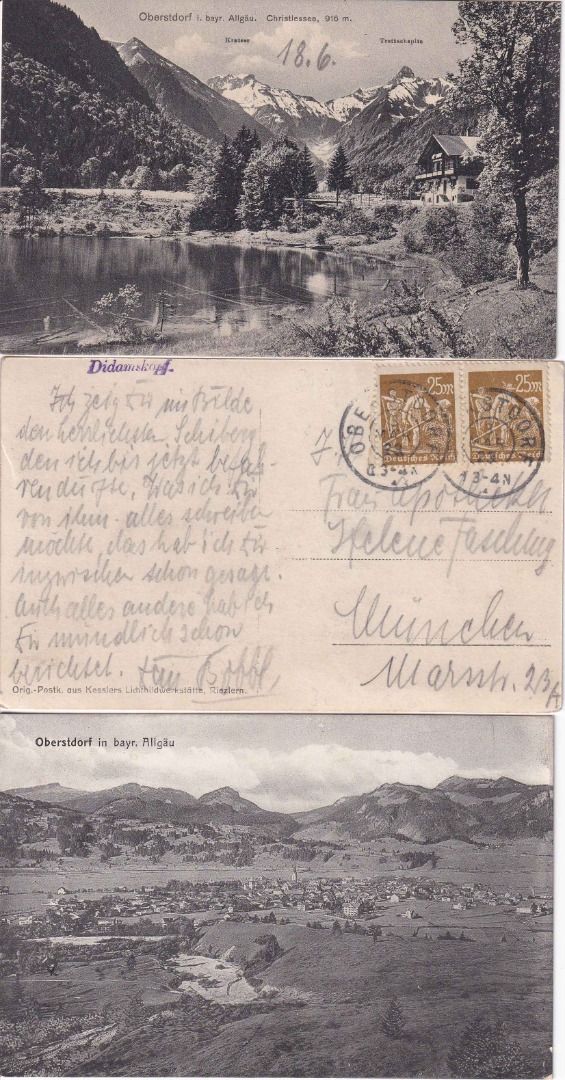 Oberstdorf i. bayr. Allgäu. Christlessee, 916 m.
Kratzer
Trettachspitz
18.6.
Didamskopf.
25M
25M
Deutsches Reich
Deutsches Reich
OBERSTDORF
3-4N
3-4N
Ich zeig Dir im Bilde
den herrlichsten Schiberg
den ich bis jetzt befah-
ren durfte. Was ich Dir
von ihm alles schreiben
möchte, das hab ich Dir
inzwischen schon gesagt.
Auch alles andere hab ich
Dir mündlich schon
berichtet. Dein
Frau Apotheker
Helene
München
Marsstr. 23/
Orig.-Postk. aus Kesslers Lichtbildwerkstätte, Riezlern.
Oberstdorf in bayr. Allgäu